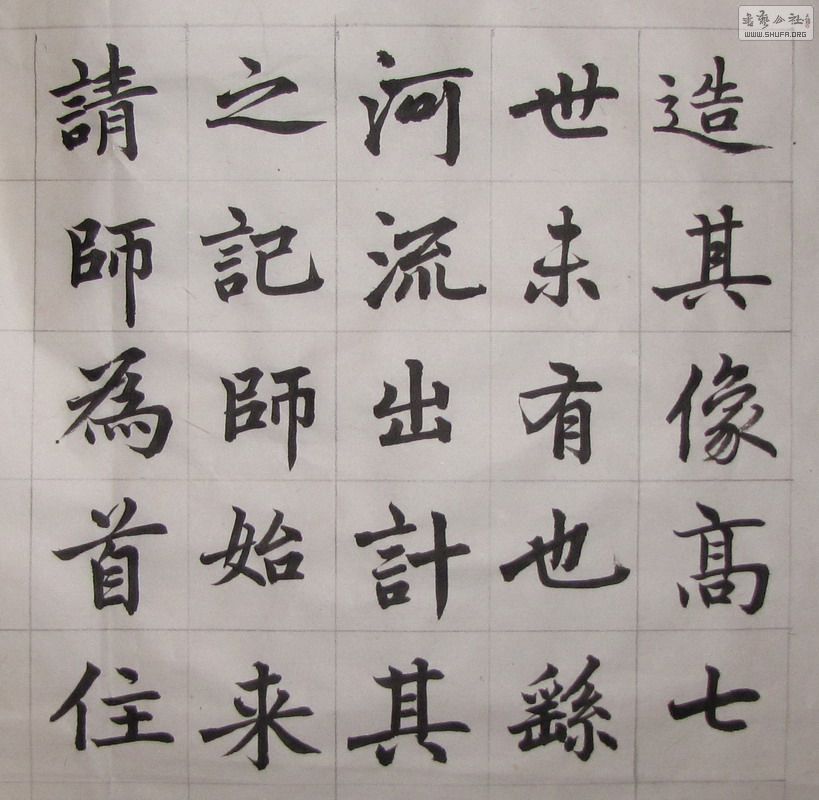 造其像髙七
世未有也繇
河流出計其
之記師始来
請師為首住
書藝公社
WWW.SHUFA.ORG